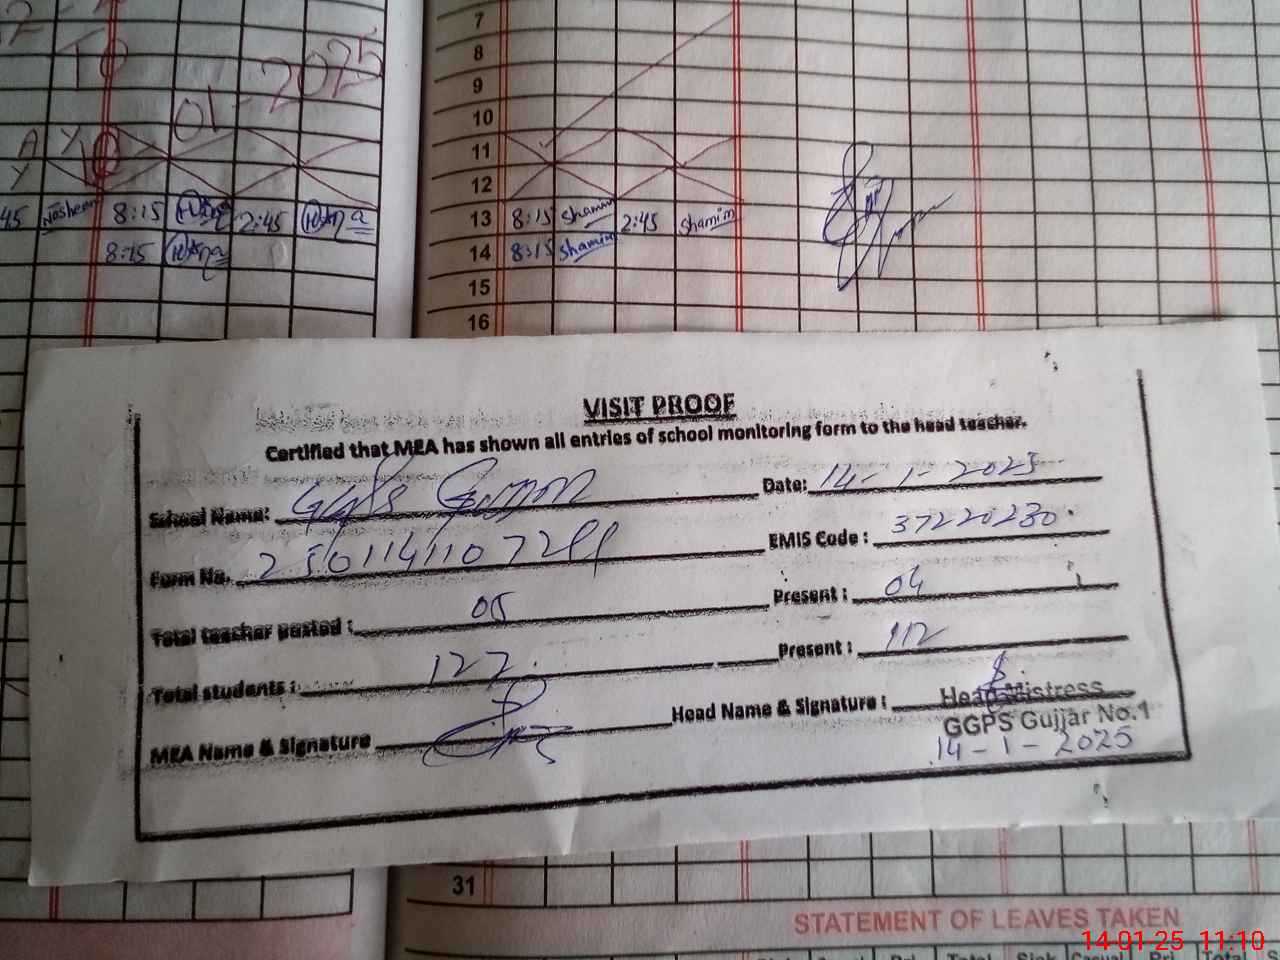 TO
01-2025
A
Y
45 Nosheen 8:15 2:45
8:15
7
8
9
10
11
12
13 8:15 Shamim 2:45 Shamim
14 8:15 Shamim
15
16
VISIT PROOF
Certified that MEA has shown all entries of school monitoring form to the head teacher.
School Name: GGPS Date: 14-1-2025
Form No. EMIS Code : 37220230
Total teacher posted : 05 Present : 04
Total students : 122 Present : 112
MEA Name & Signature Head Name & Signature :
Head Mistress
GGPS Gujjar No.1
14-1-2025
31
STATEMENT OF LEAVES TAKEN
Total Sick Casual Pri Total
14-01-25 11:10